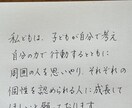 私どもは、子どもが自分で考え
自分の力で行動するとともに
周囲の人を思いやり、それぞれの
個性を認められる人に成長して
ほしいと願っております